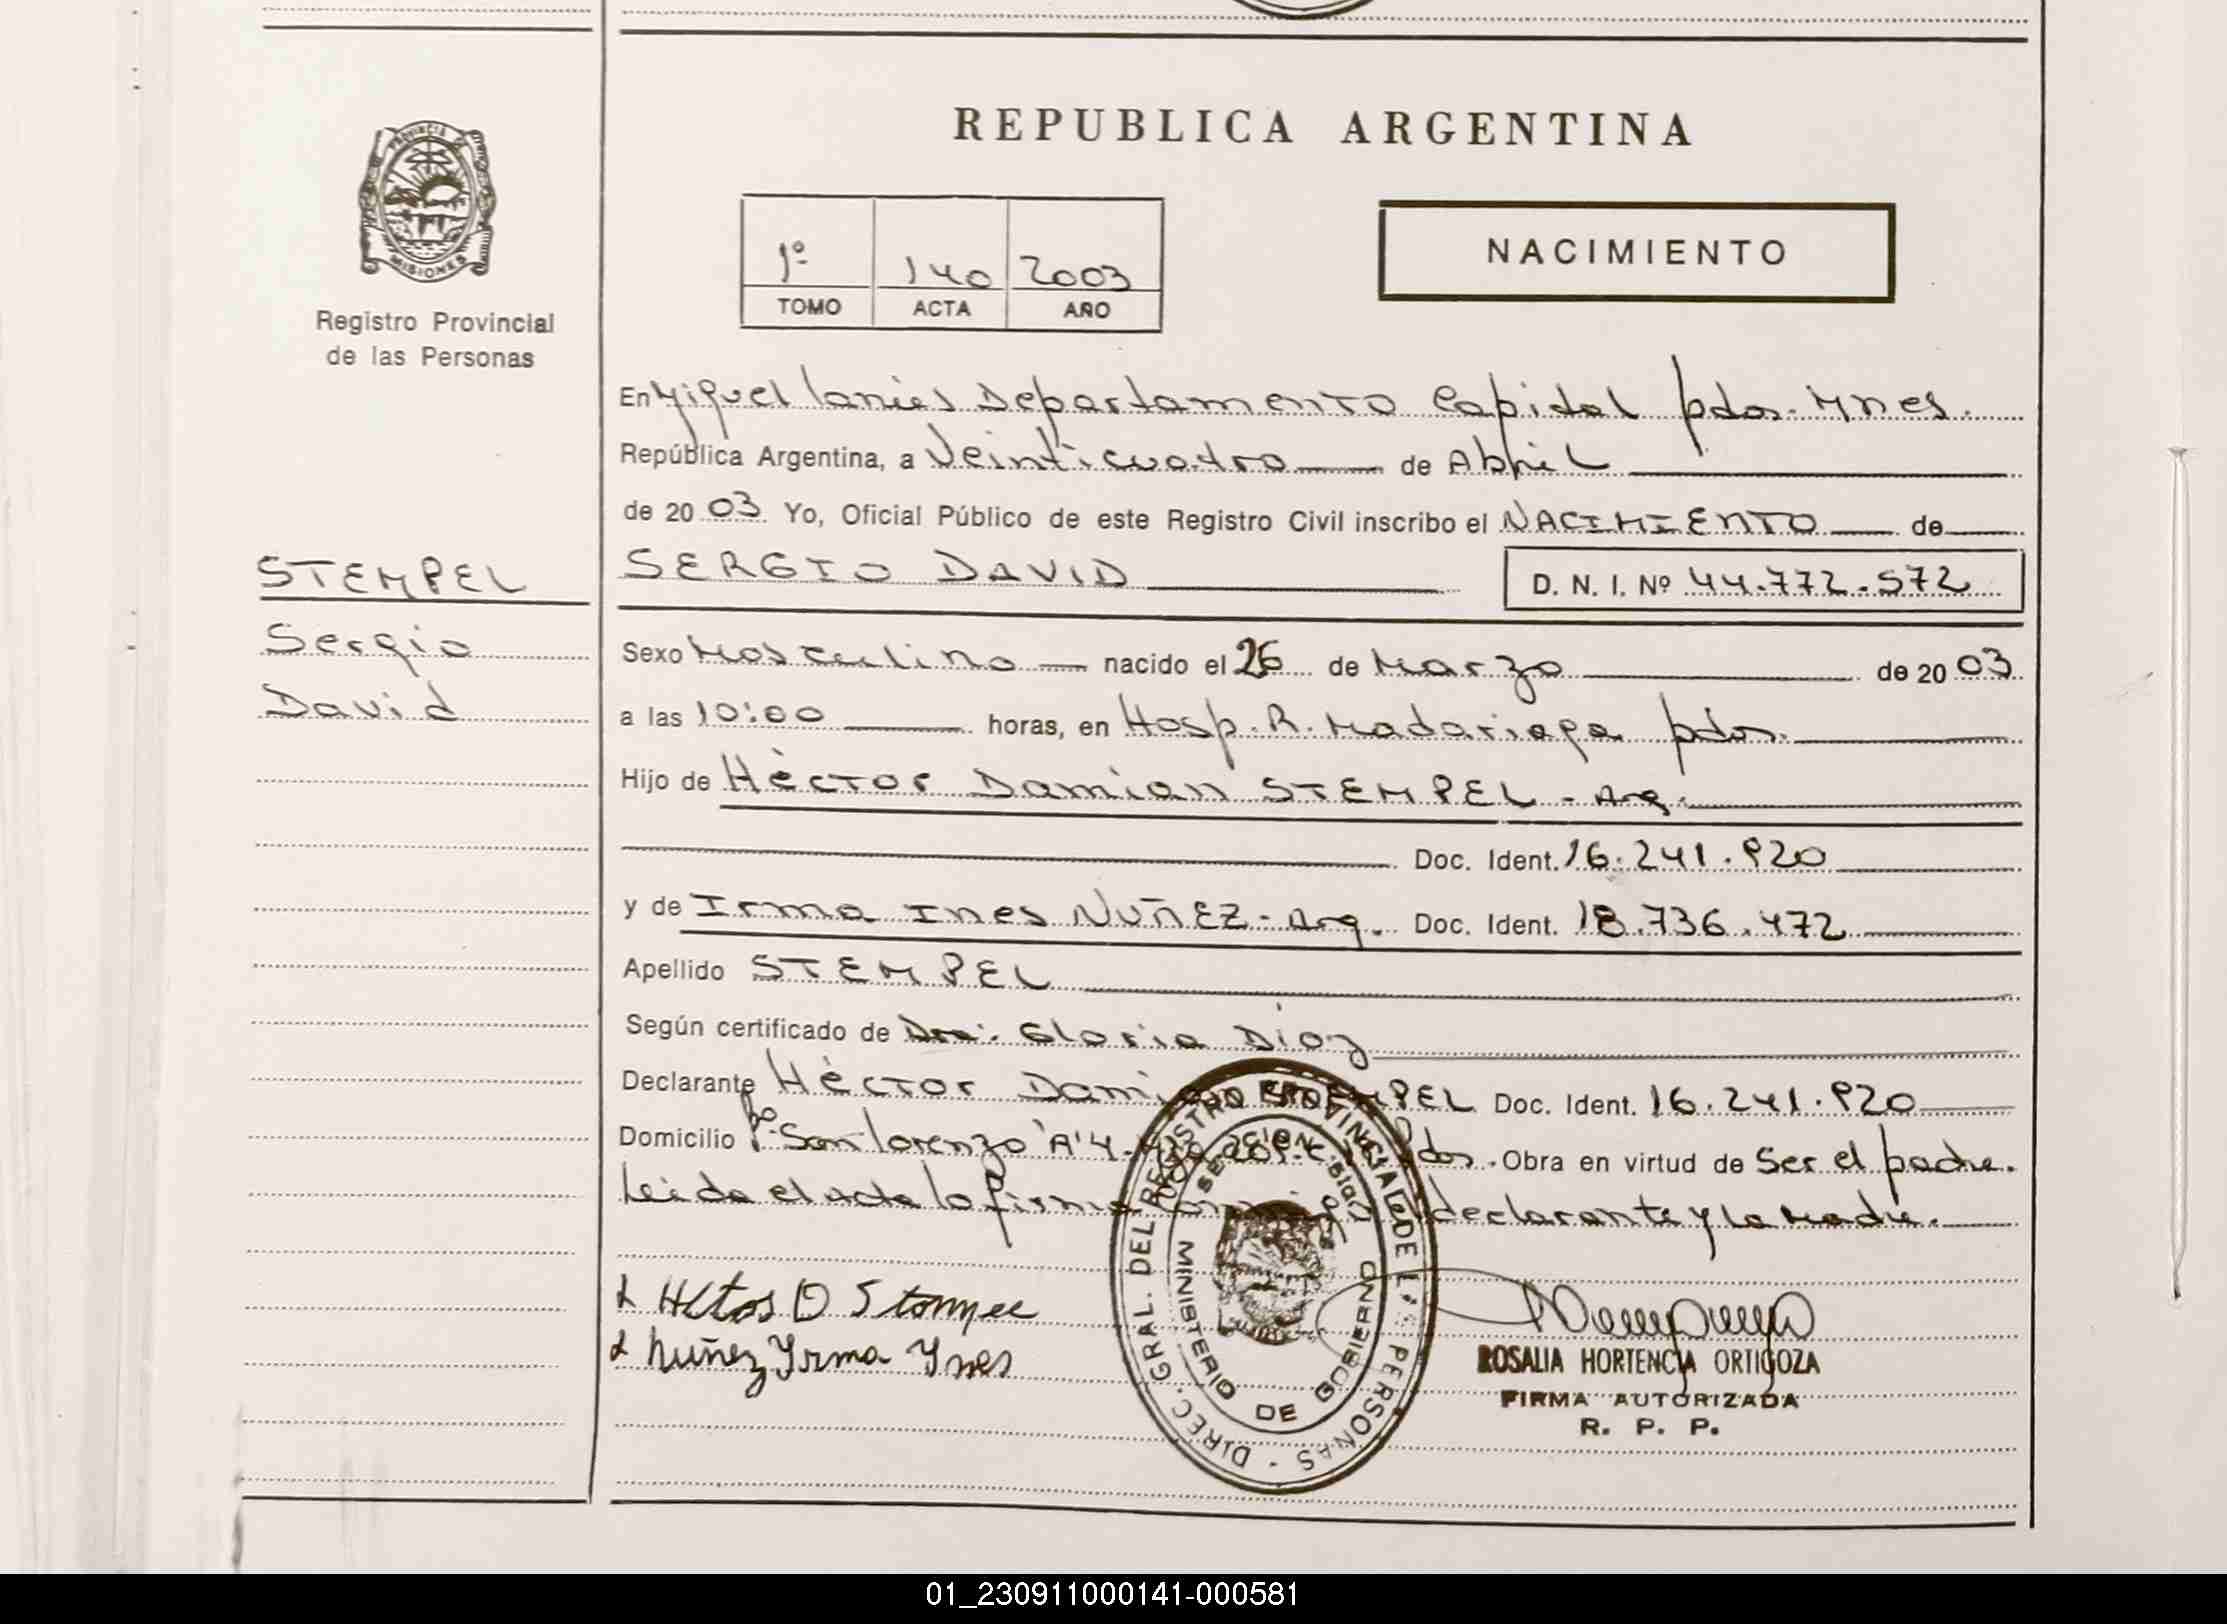 PROVINCIA DE
MISIONES
Registro Provincial
de las Personas
REPUBLICA ARGENTINA
1º 140 2003
TOMO ACTA AÑO
NACIMIENTO
En Miguel Lanús Departamento Capital pdas. Mnes.
República Argentina, a Veinticuatro de Abril
de 2003 Yo, Oficial Público de este Registro Civil inscribo el NACIMIENTO de
STEMPEL
SERGIO DAVID D. N. I. Nº 44.772.572
Sergio
David
Sexo Masculino nacido el 26 de Marzo de 2003
a las 10:00 horas, en Hosp. R. Madariaga pdas.
Hijo de Héctor Damian STEMPEL - Arg.
Doc. Ident. 16.241.920
y de Irma Ines NUÑEZ - Arg. Doc. Ident. 18.736.472
Apellido STEMPEL
Según certificado de Dra. Gloria Diaz
Declarante Héctor Damian STEMPEL Doc. Ident. 16.241.920
Domicilio Bº San Lorenzo "A" 4. pdas. Obra en virtud de Ser el padre.
Leida el acta la firma conmigo el declarante y la Madre.
Nuñez Yrma Ynes
DIREC. GRAL. DEL REGISTRO PROVINCIAL DE LAS PERSONAS
MINISTERIO DE GOBIERNO
ROSALIA HORTENCIA ORTIGOZA
FIRMA AUTORIZADA
R. P. P.
01_230911000141-000581